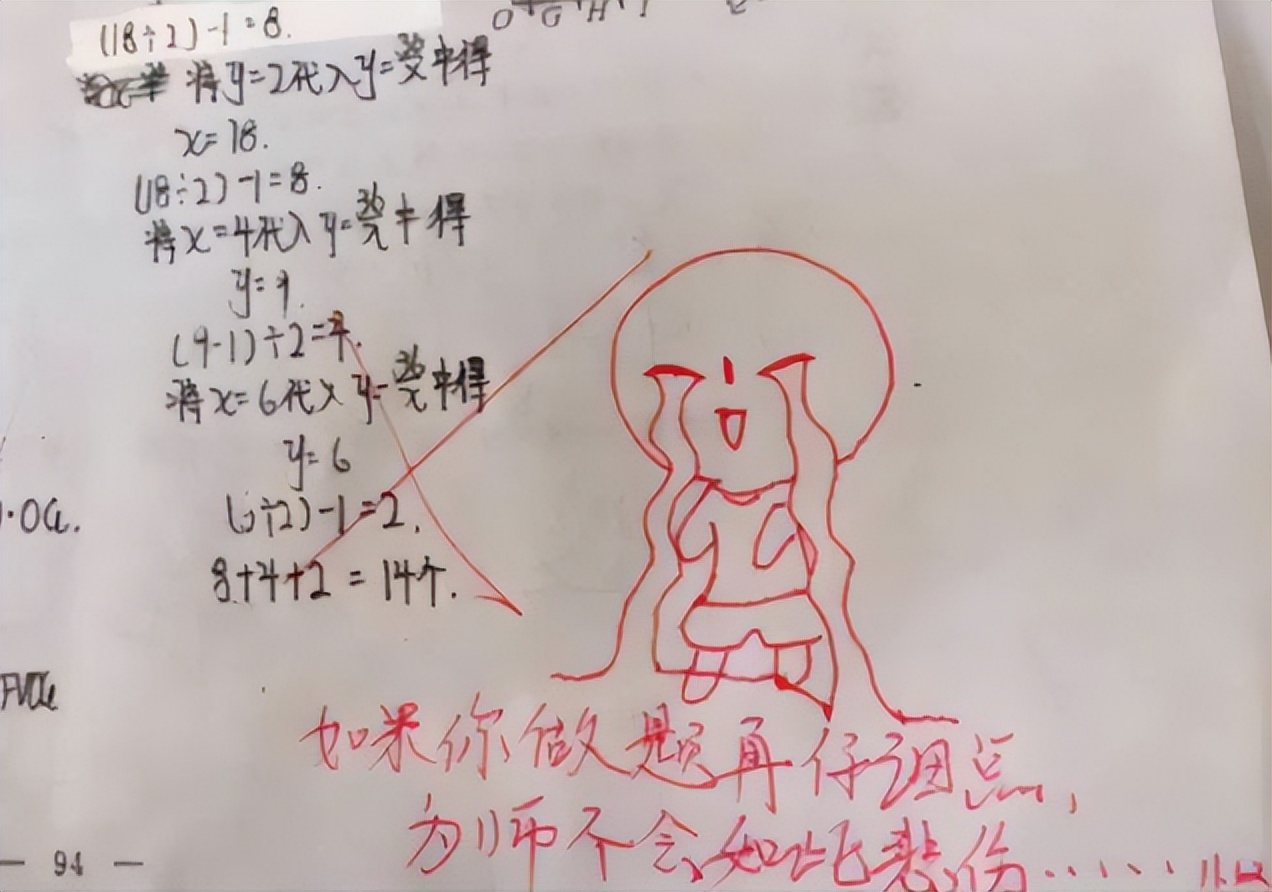 (18÷2)-1=8.
将y=2代入y=36/x中得
x=18.
(18÷2)-1=8.
将x=4代入y=36/x中得
y=9.
(9-1)÷2=4.
将x=6代入y=36/x中得
y=6
(6÷2)-1=2.
8+4+2=14个.
如果你做题再仔细点,
为师不会如此悲伤……
— 94 —